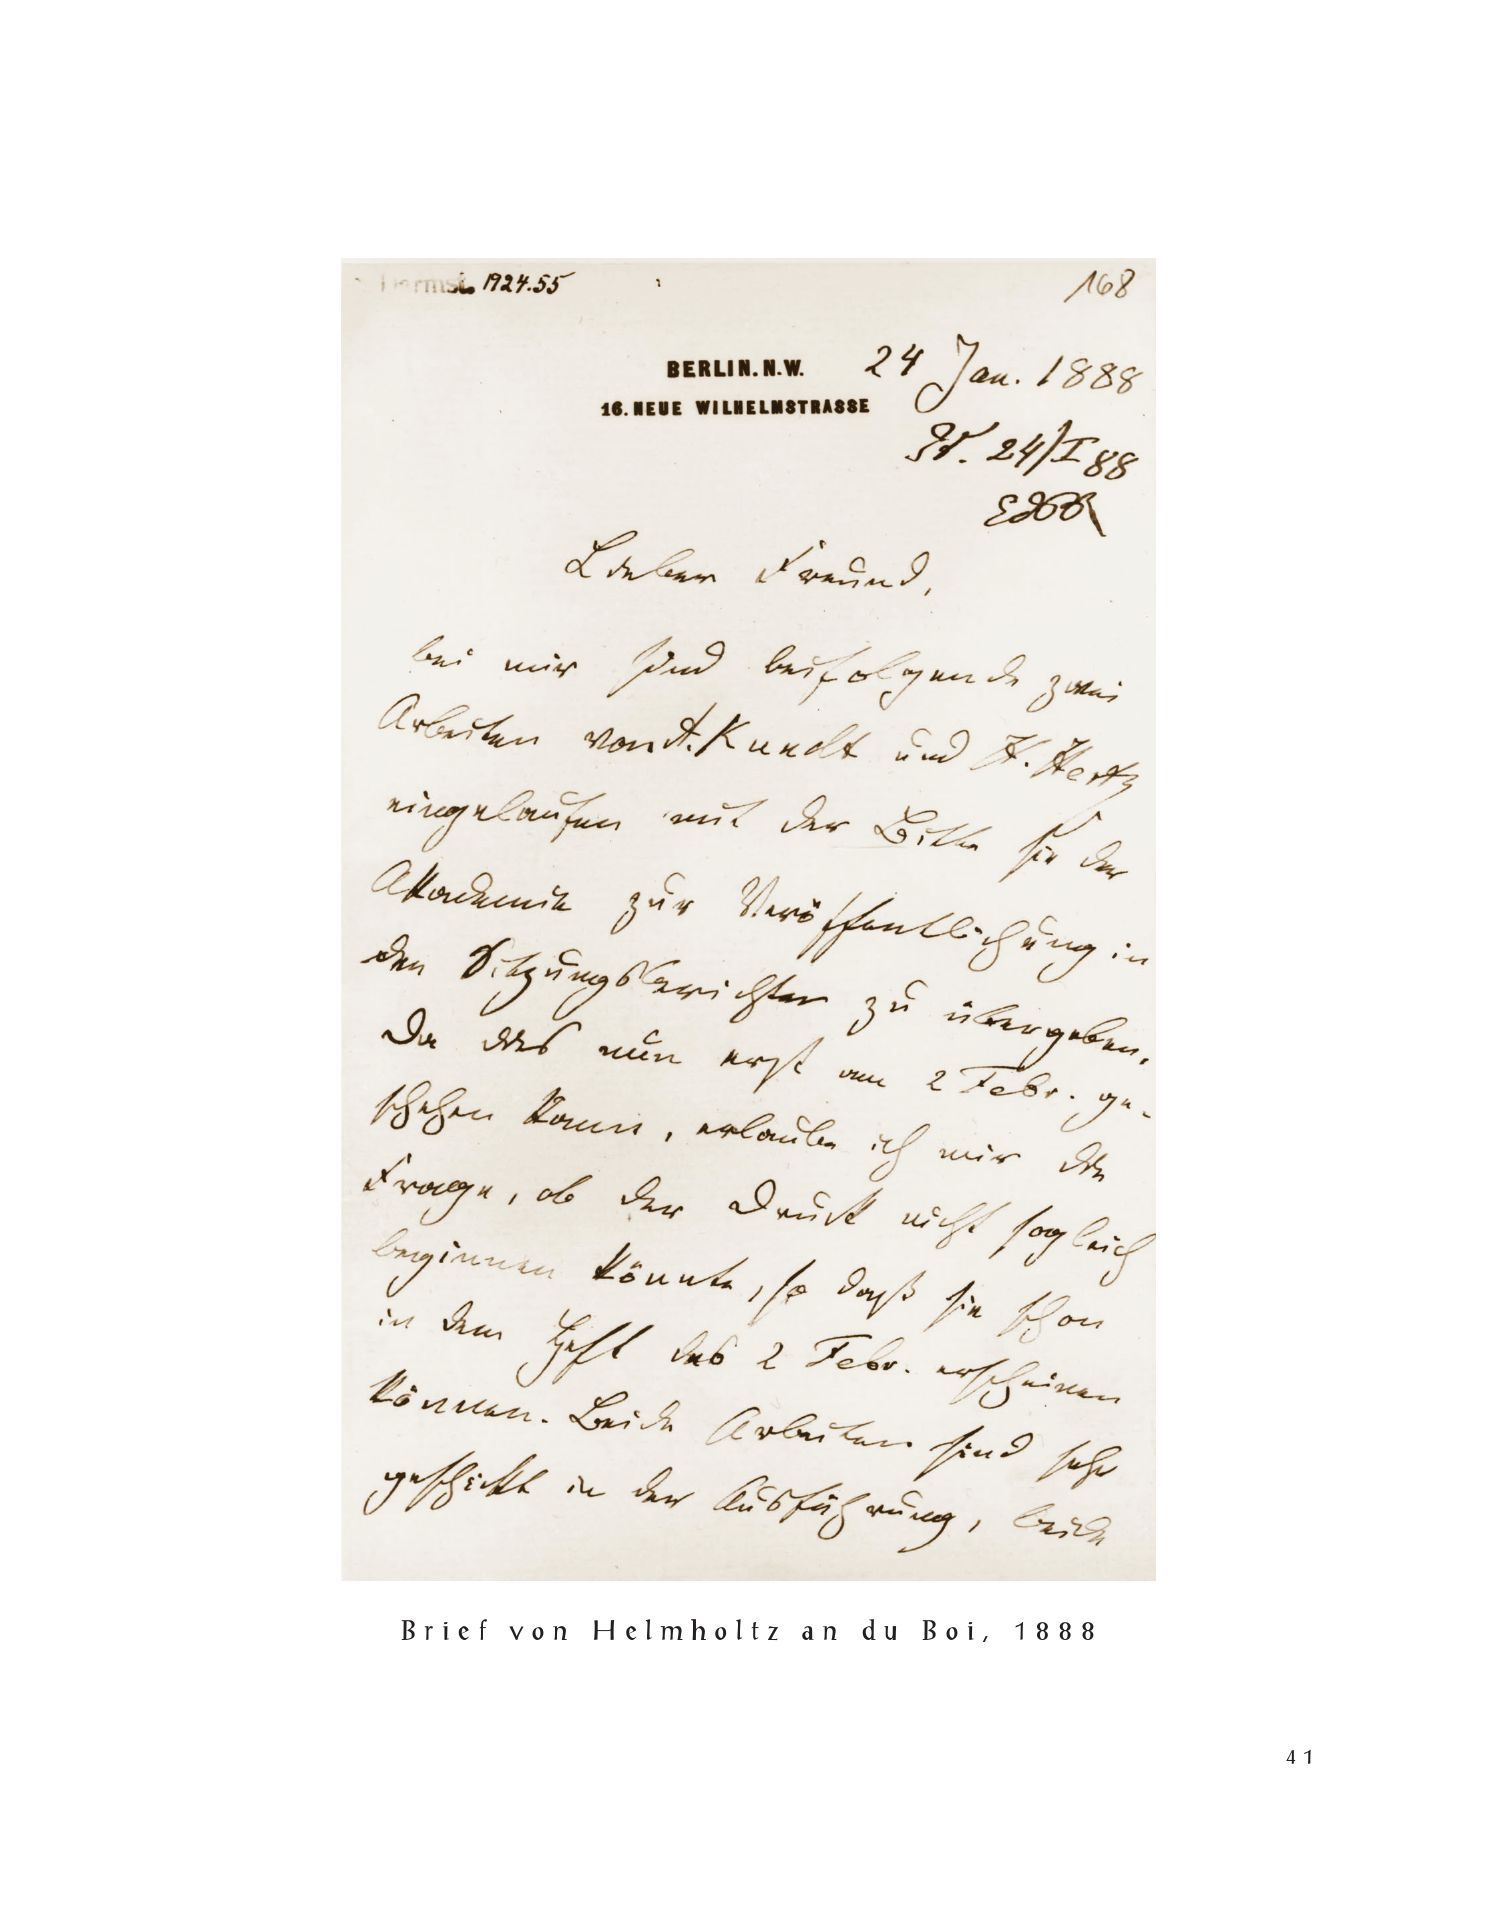 Darmst. 1924.55
168
BERLIN. N.W.
24 Jan. 1888
16. NEUE WILHELMSTRASSE
24/I 88
EdBR
Lieber Freund,
bei mir sind beifolgende zwei
Arbeiten von A. Kundt und H. Hertz
eingelaufen mit der Bitte sie der
Akademie zur Veröffentlichung in
den Sitzungsberichten zu übergeben.
Da dies nun erst am 2 Febr. ge-
schehen kann, erlaube ich mir die
Frage, ob der Druck nicht sogleich
beginnen könnte, so daß sie schon
in dem Heft des 2 Febr. erscheinen
können. Beide Arbeiten sind sehr
geschickt in der Ausführung, beide
Brief von Helmholtz an du Boi, 1888
41